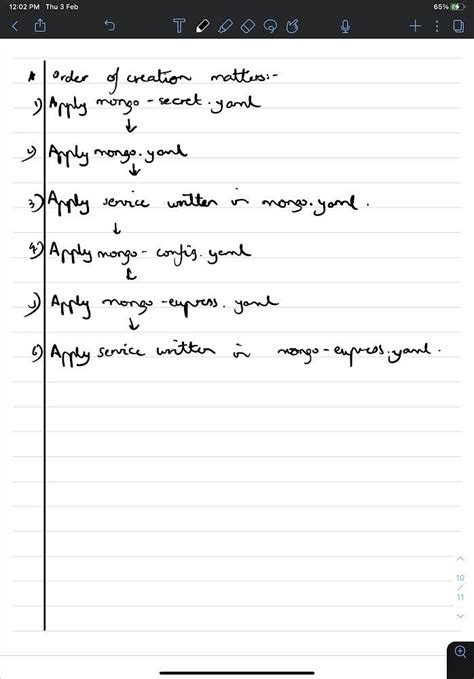 12:02 PM Thu 3 Feb 65%
* Order of creation matters:-
1) Apply mongo-secret.yaml
↓
2) Apply mongo.yaml
↓
3) Apply service written in mongo.yaml.
↓
4) Apply mongo-config.yaml
↓
5) Apply mongo-express.yaml
↓
6) Apply service written in mongo-express.yaml.
10
/
11